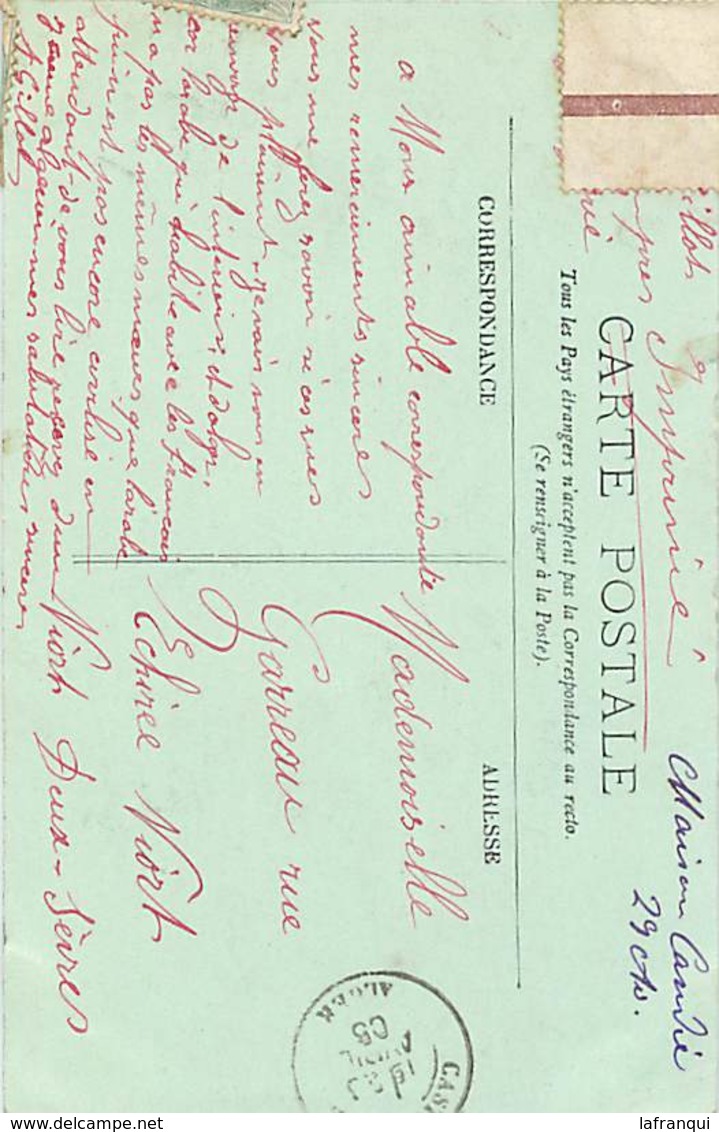 illot
Imprimé
CARTE POSTALE
Tous les Pays étrangers n'acceptent pas la Correspondance au recto.
(Se renseigner à la Poste).
CORRESPONDANCE
ADRESSE
a Mon aimable correspondante
mes remerciements sincères
vous me ferez savoir si ces vues
vous plaisent, je vais vous en
de l'interieur, et d'alger,
car l'arabe qui habite avec les Français
n'a pas les mêmes mœurs que l'arabe
qui n'est pas encore civilisé en
attendant de vous lire recevez d'un
jeune algerien mes salutations sinceres
A Gillot
Mademoiselle
Garreau rue
Echirée Niort
Niort Deux-Sèvres
Maison Carrée
29 cts.
CAS
AVRIL
05
ALGER
delcampe.net
lafranqui